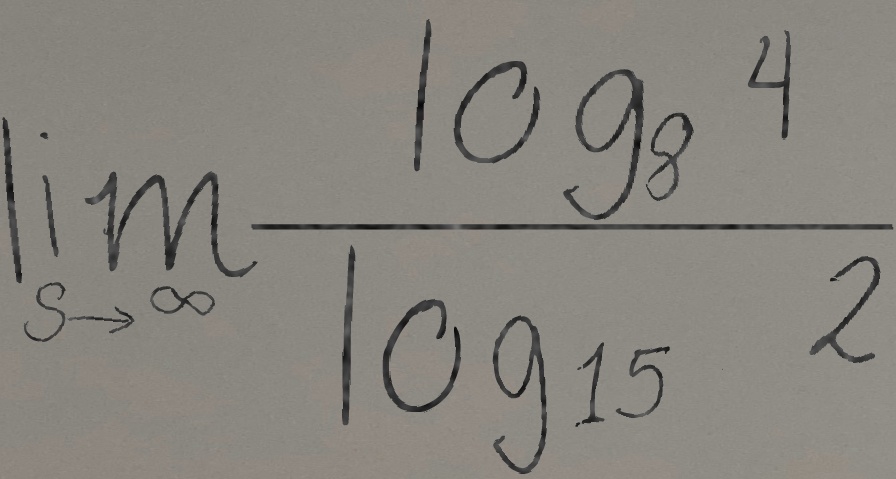 \lim_{s \to \infty} \frac{\log_8 4}{\log_{15} 2}